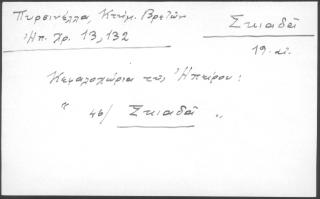 Πυρσινέλλα, Κτήμ. Βρετῶν
Ἠπ. Χρ. 13, 132
Σκιαδᾶ
19. αἰ.
Κεφαλοχώρια τῆς Ἠπείρου:
" 46/ Σκιαδᾶ "